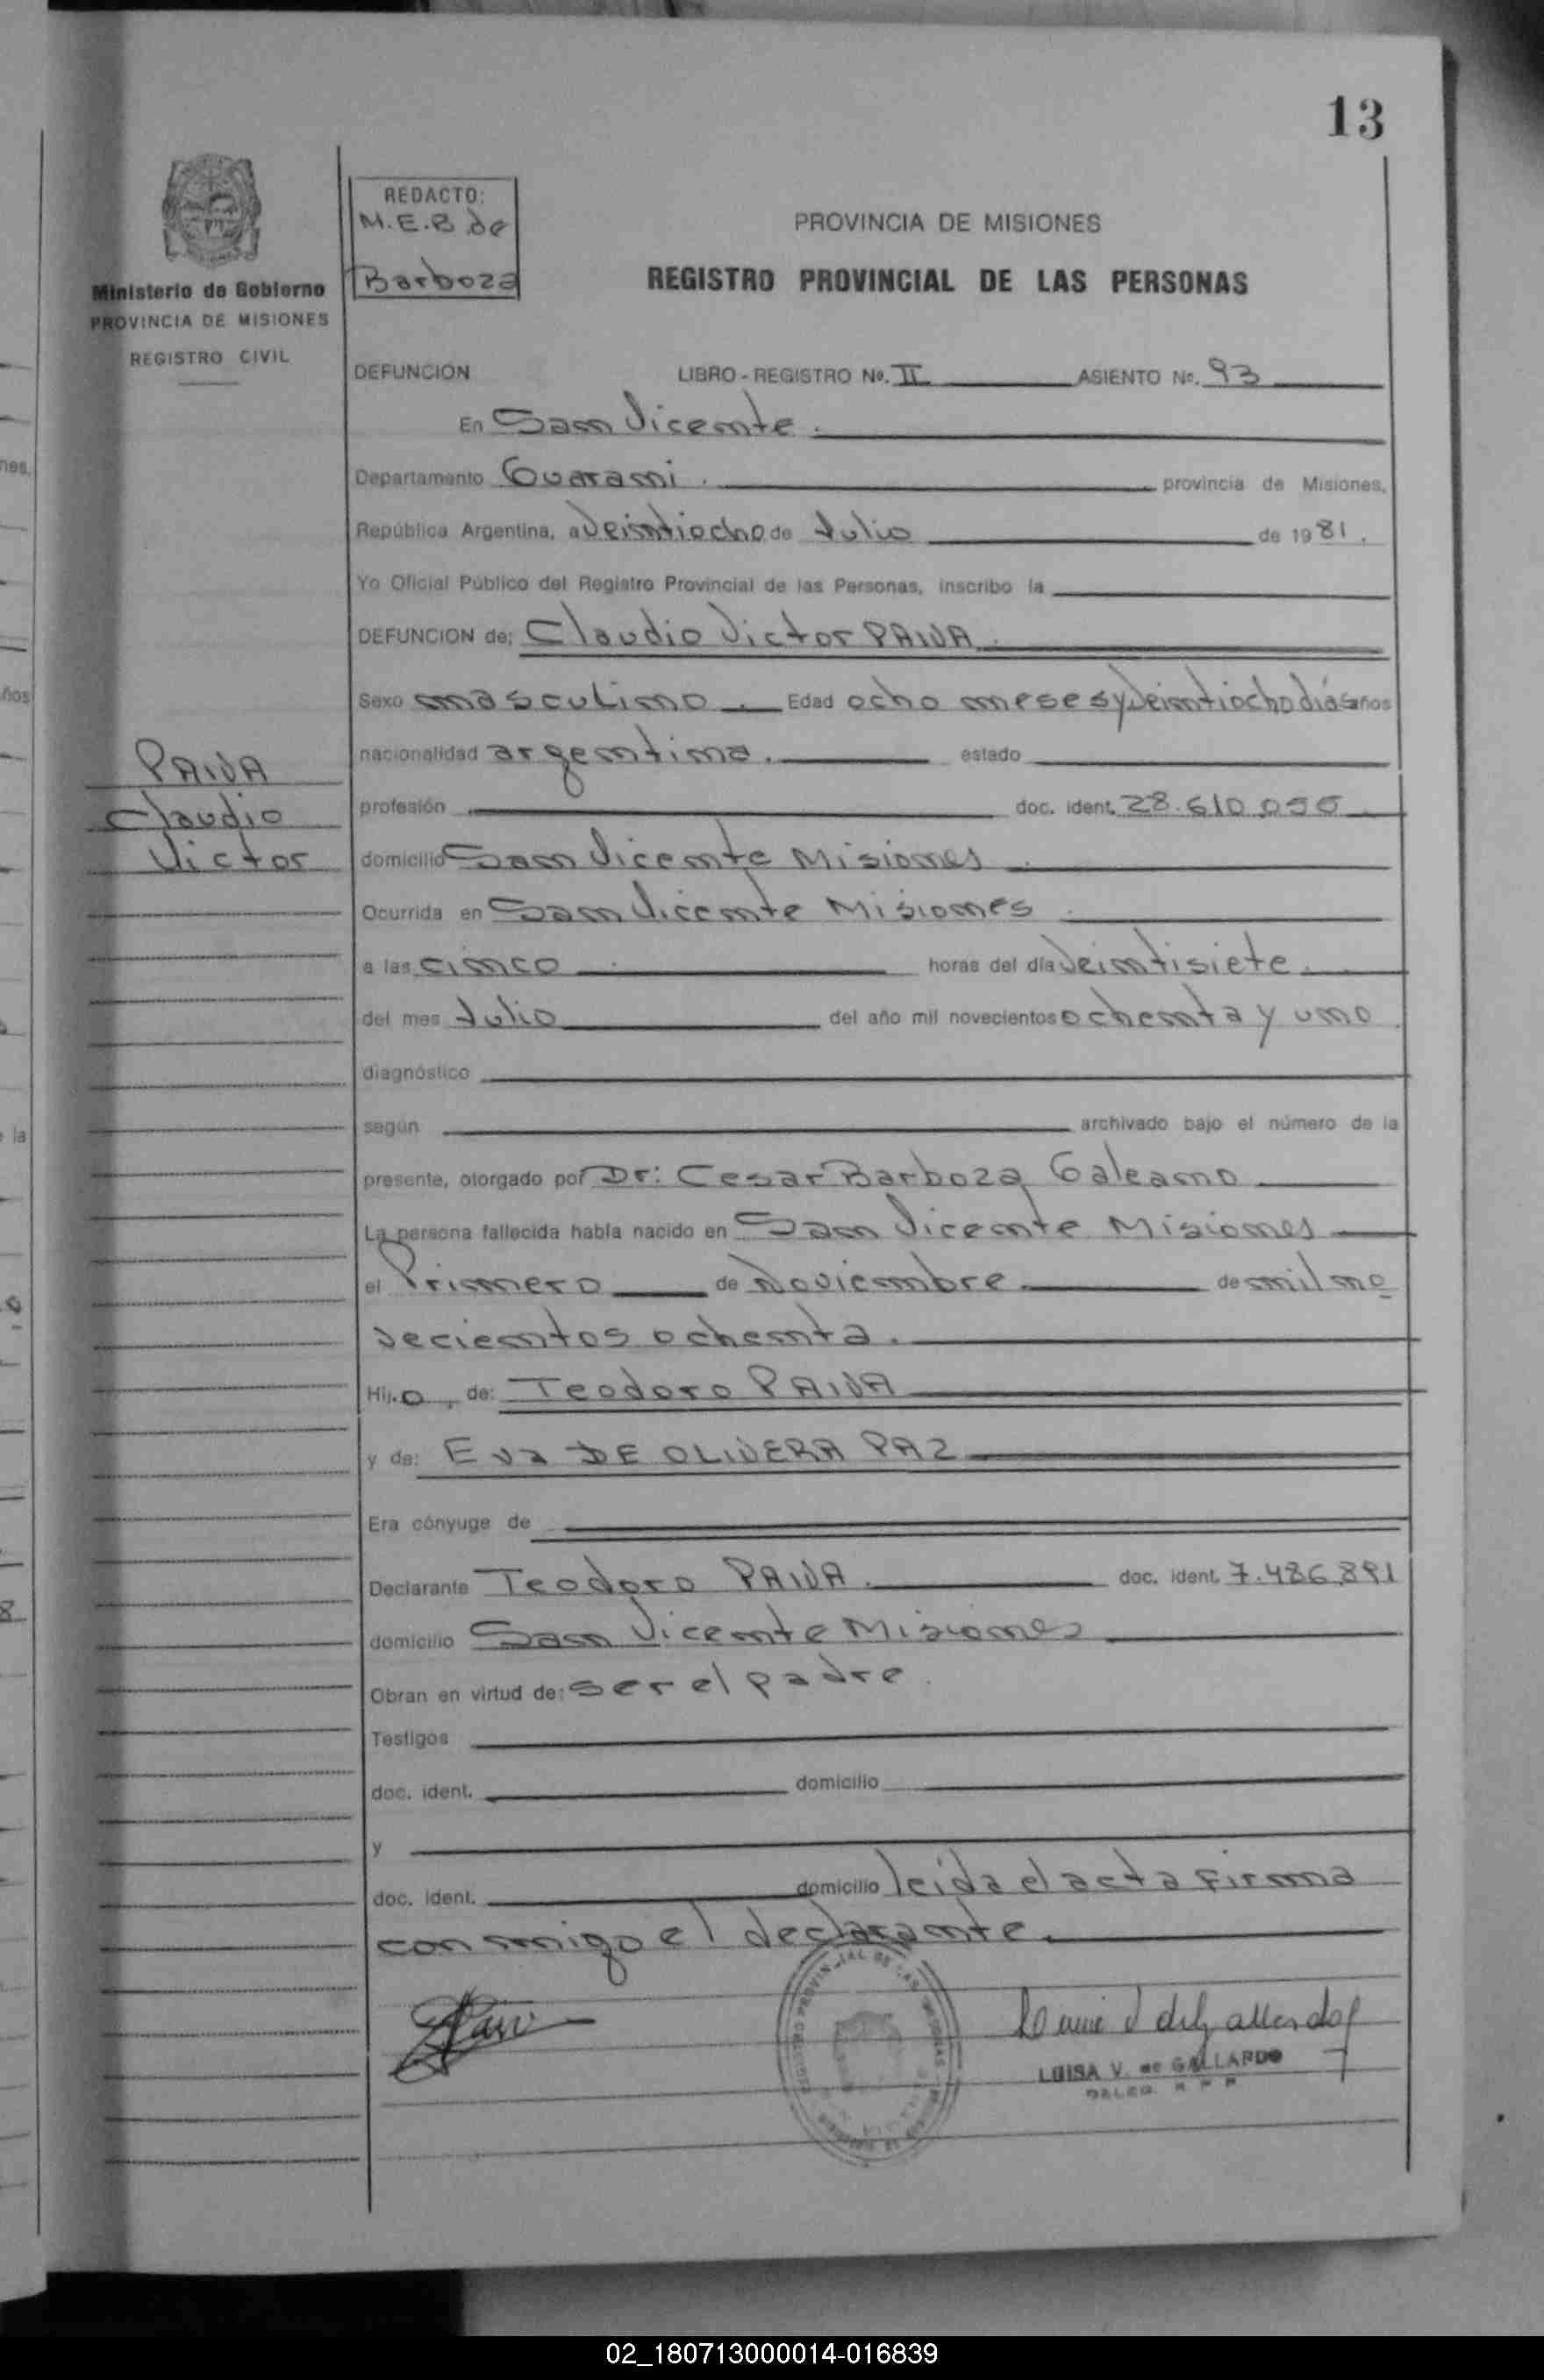 13
REDACTO:
M.E.B de
Barboza
Ministerio de Gobierno
PROVINCIA DE MISIONES
REGISTRO CIVIL
PROVINCIA DE MISIONES
REGISTRO PROVINCIAL DE LAS PERSONAS
DEFUNCION LIBRO - REGISTRO No. II ASIENTO No. 93
En San Vicente.
Departamento Guarani. provincia de Misiones,
República Argentina, a Veintiocho de Julio de 1981.
Yo Oficial Público del Registro Provincial de las Personas, inscribo la
DEFUNCION de: Claudio Victor PAIVA.
Sexo masculino. Edad ocho meses y veintiocho días años
nacionalidad argentina. estado
PAIVA
Claudio
Victor
profesión doc. ident. 28.610.055
domicilio San Vicente Misiones.
Ocurrida en San Vicente Misiones.
a las cinco. horas del día Veintisiete.
del mes Julio del año mil novecientos ochenta y uno.
diagnóstico
según archivado bajo el número de la
presente, otorgado por Dr: Cesar Barboza Galeano
La persona fallecida había nacido en San Vicente Misiones
el Primero de Noviembre. de mil no
vecientos ochenta.
Hij.o, de: Teodoro PAIVA
y de: Eva DE OLIVERA PAZ
Era cónyuge de
Declarante Teodoro PAIVA. doc. ident. 7.486.891
domicilio San Vicente Misiones
Obran en virtud de: ser el padre.
Testigos
doc. ident. domicilio
y
doc. ident. domicilio leida el acta firma
conmigo el declarante.
LUISA V. de GALLARDO
DELEG. R P P
02_180713000014-016839